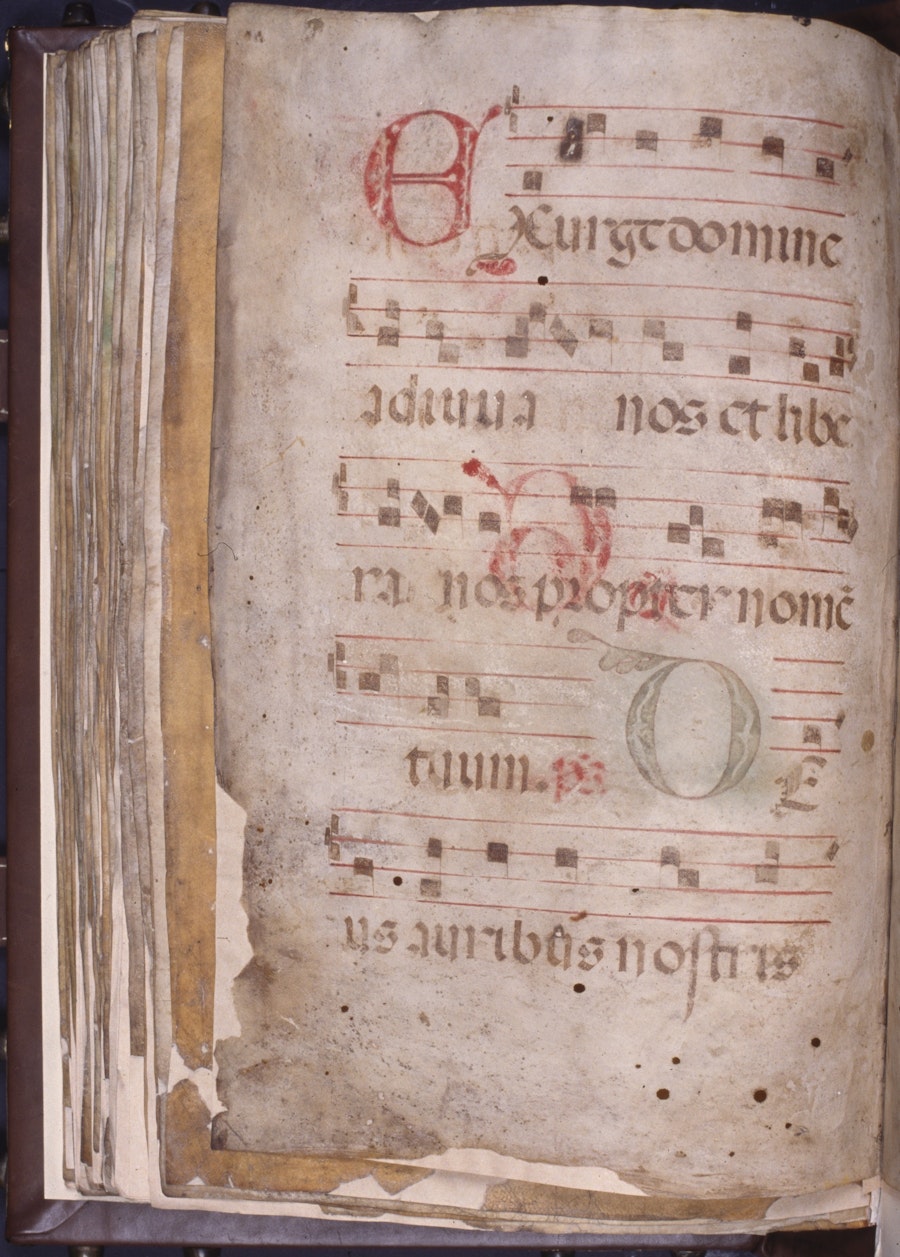 Exurge domine
adiuua nos et libe
ra nos propter nomē
tuum. ps̄ DE
us auribus nostris